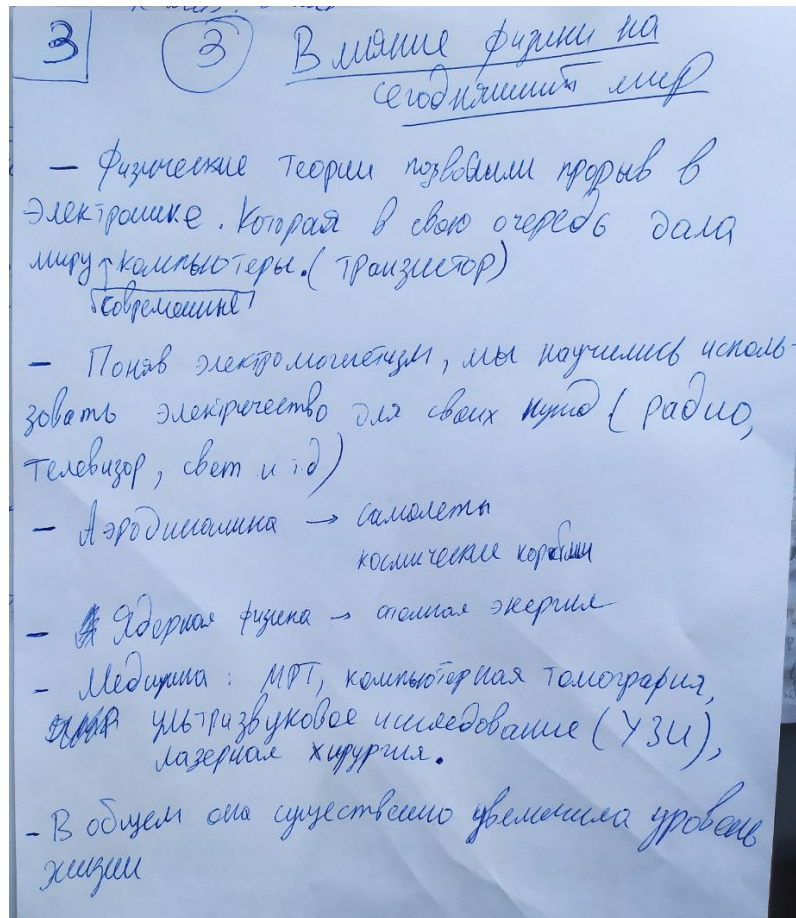 3
3 Влияние физики на
сегодняшний мир
— Физические теории позволили прорыв в
электронике. Которая в свою очередь дала
миру компьютеры. (транзистор)
современные
— Поняв электромагнетизм, мы научились исполь-
зовать электричество для своих нужд (радио,
телевизор, свет и т.д)
— Аэродинамика → самолеты
космические корабли
— Ядерная физика → атомная энергия
— Медицина: МРТ, компьютерная томография,
ультразвуковое исследование (УЗИ),
лазерная хирургия.
- В общем она существенно увеличила уровень
жизни